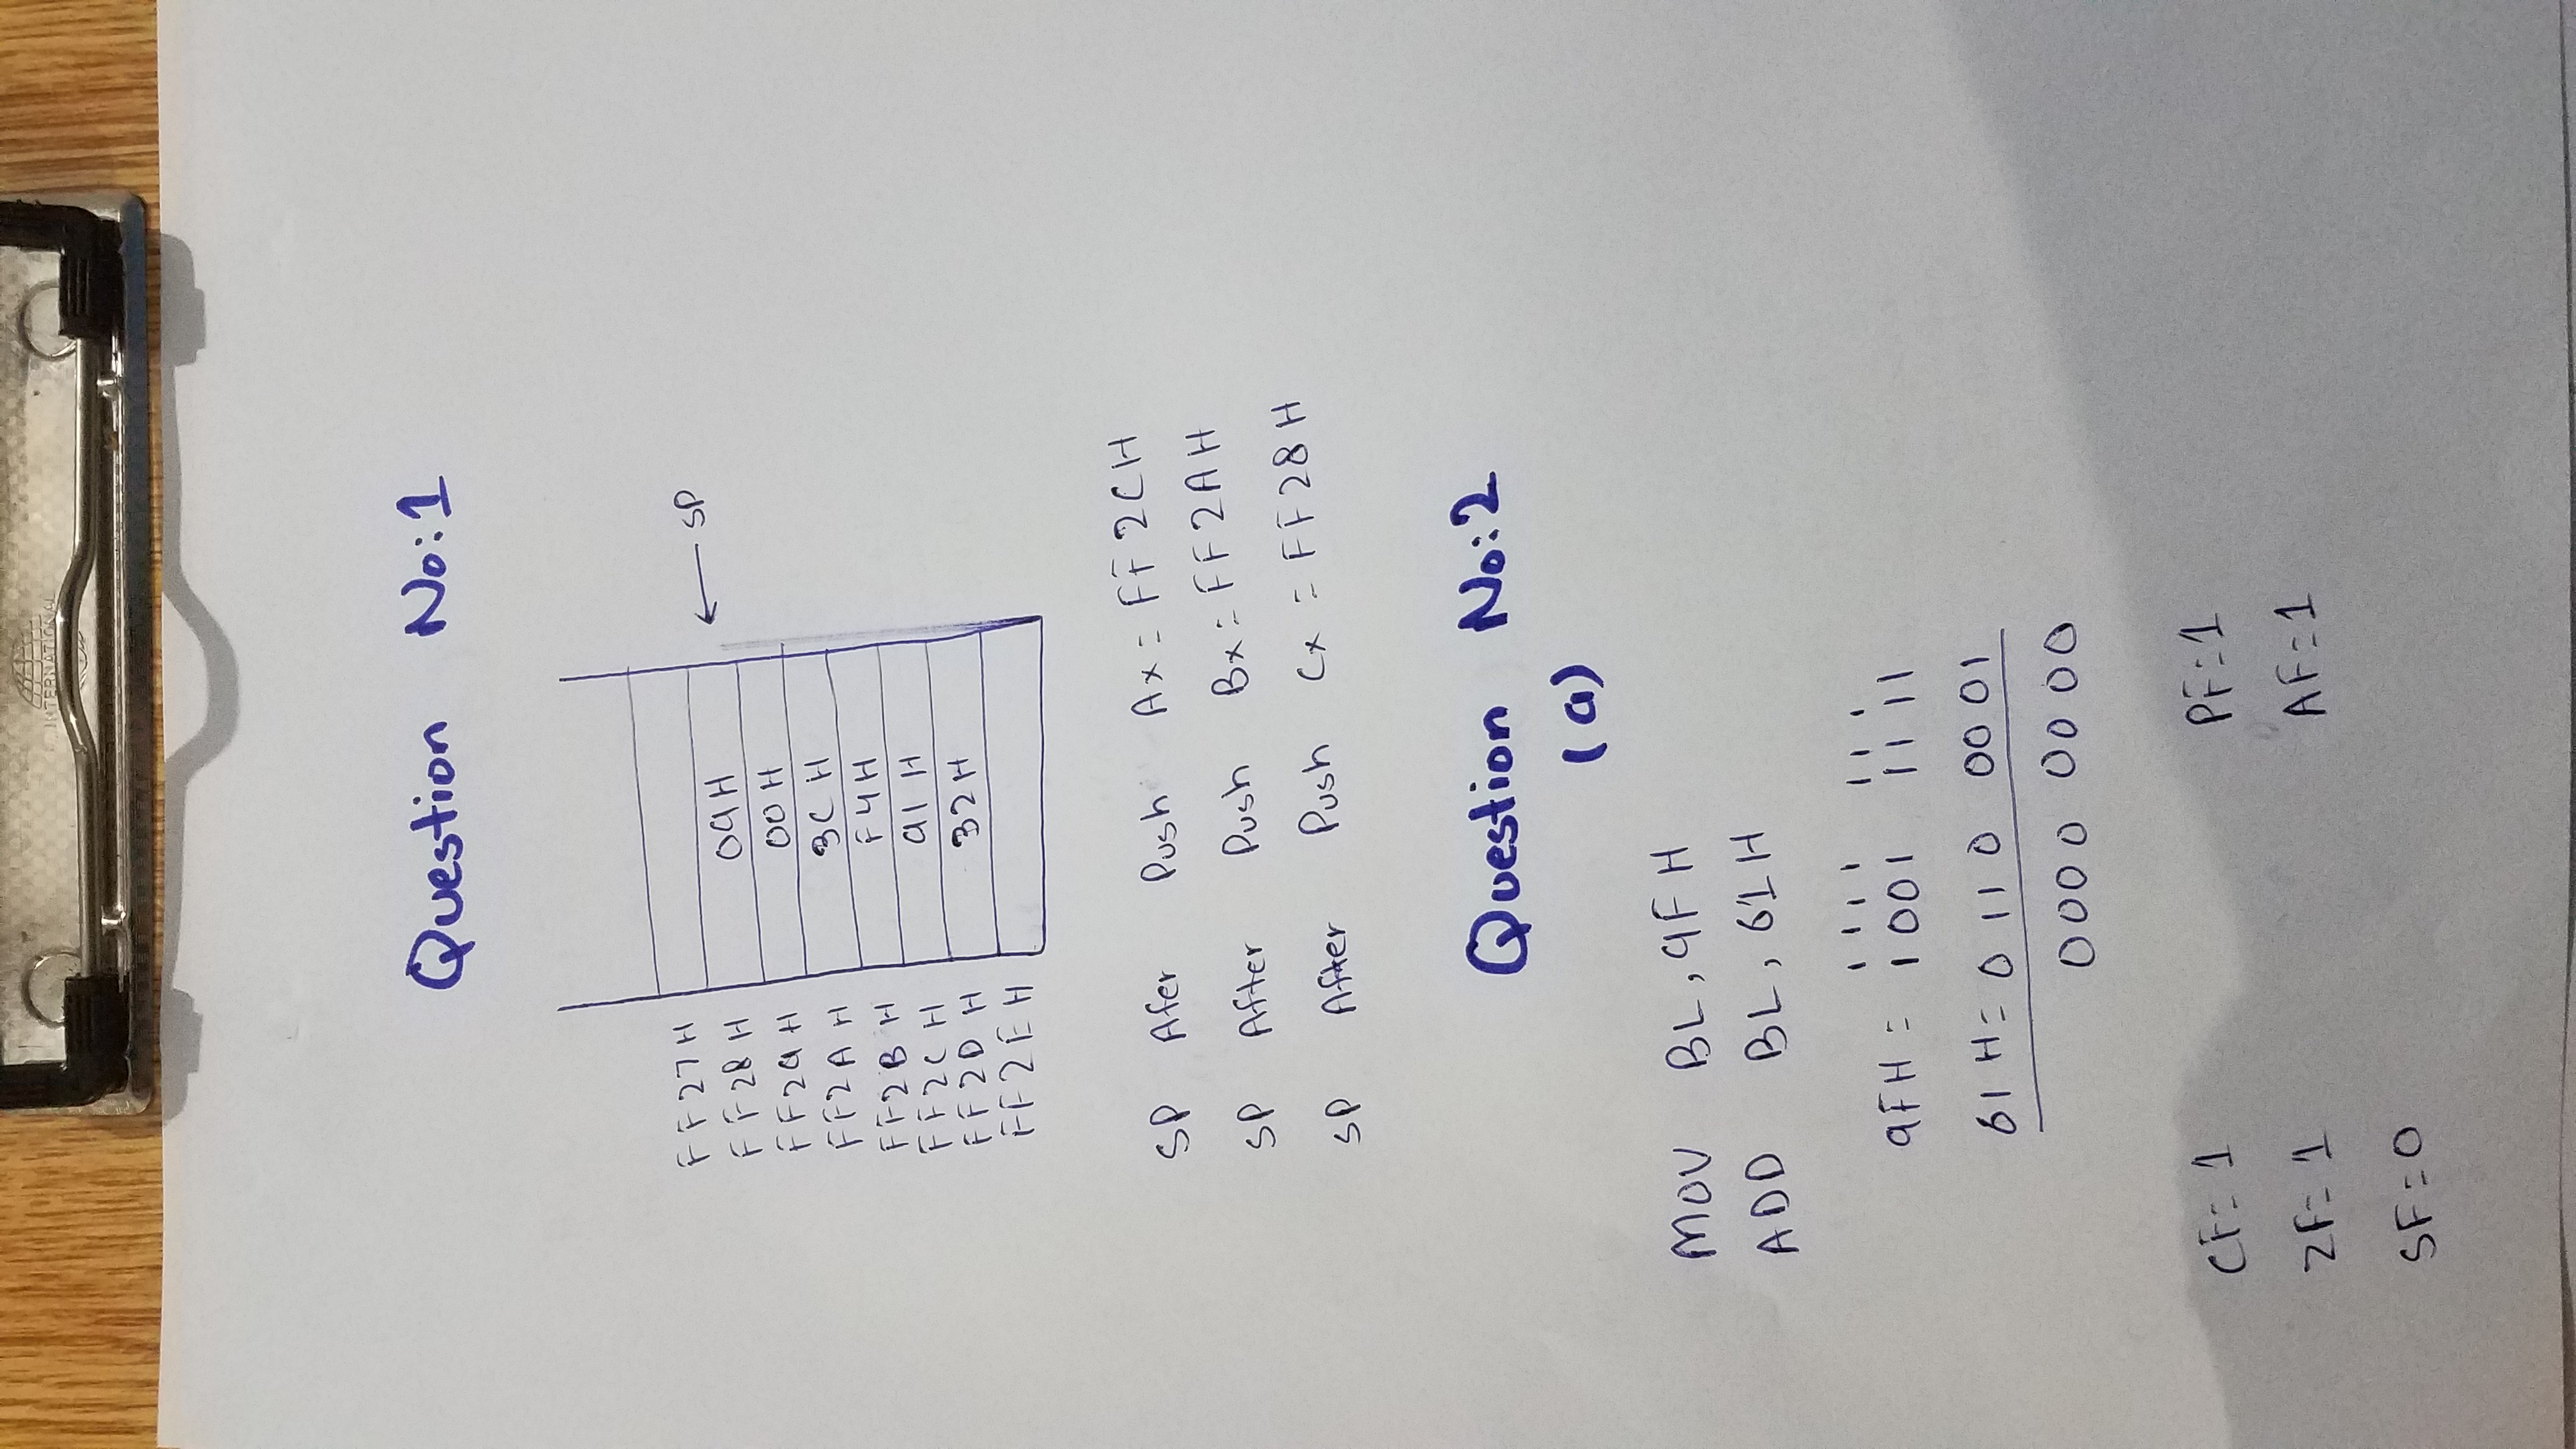 INTERNATIONAL
Question No:1
FF27H
← SP
FF28H 09H
FF29H 00H
FF2AH 3CH
FF2BH F4H
FF2CH 91H
FF2DH 32H
FF2EH
SP Afer Push Ax = FF2CH
SP After Push Bx = FF2AH
SP After Push Cx = FF28H
Question No:2
(a)
MOV BL, 9FH
ADD BL, 61H
1 1 1 1 1 1 1
9FH = 1001 1111
61H = 0110 0001
0000 0000
CF = 1 PF = 1
ZF = 1 AF = 1
SF = 0